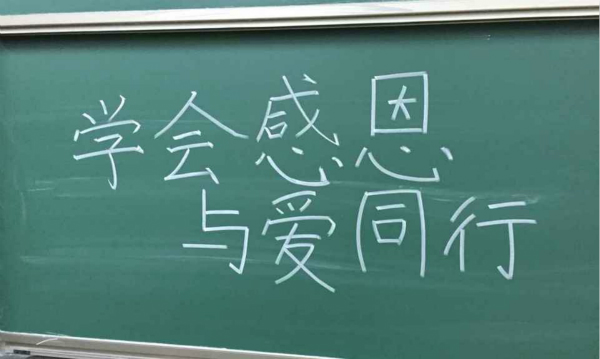 学会感恩
与爱同行